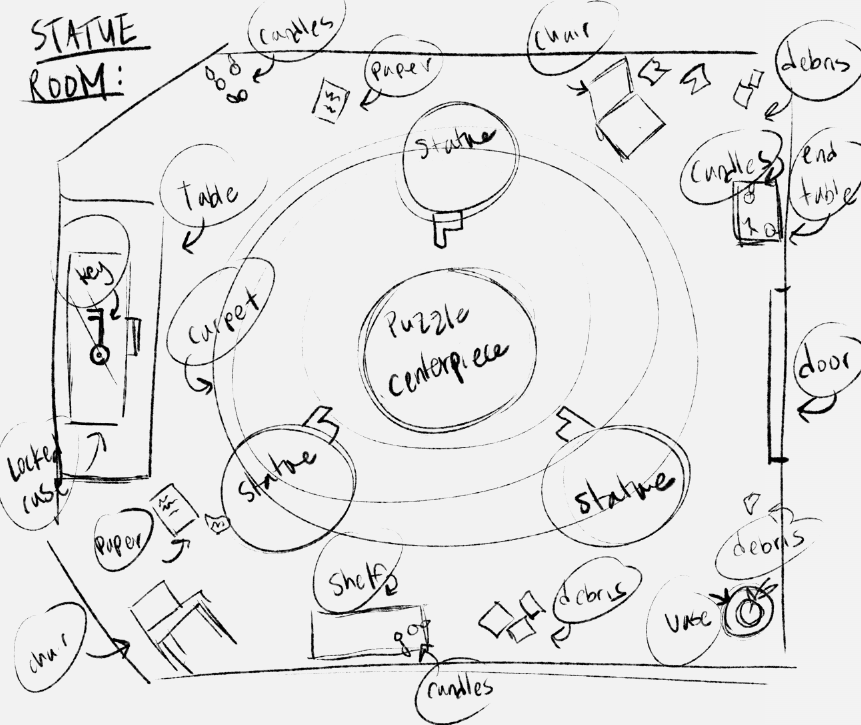 STATUE
ROOM:
candles
paper
chair
debris
statue
candles
end
table
Table
key
carpet
Puzzle
centerpiece
door
Locked
case
statue
statue
paper
shelf
debris
debris
vase
chair
candles